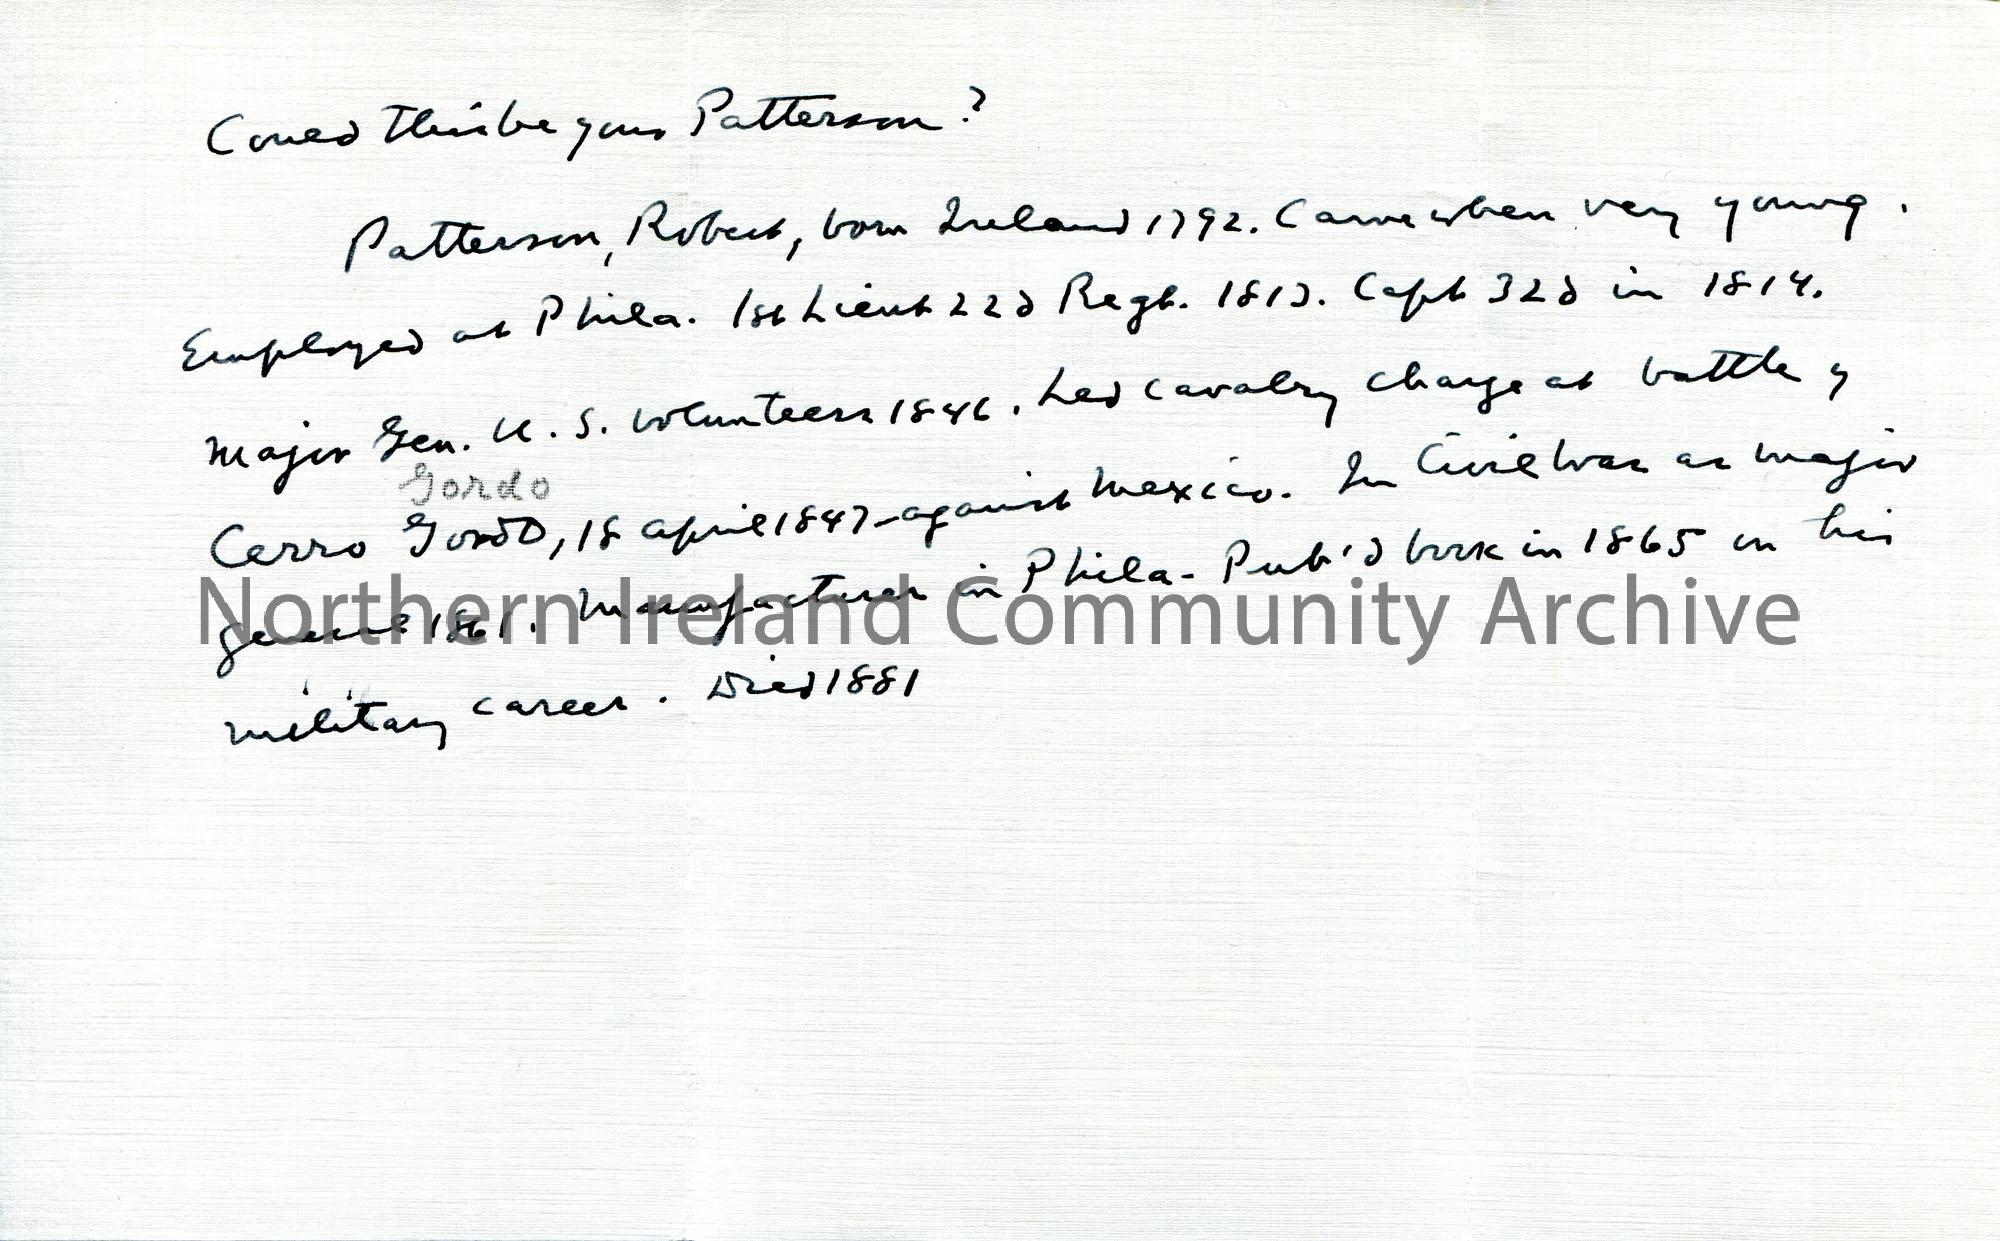 Could this be your Patterson?
Patterson, Robert, born Ireland 1792. Came when very young.
Employed at Phila. 1st Lieut 22d Regt. 1813. Capt 32d in 1814.
Major Gen. U.S. Volunteers 1846. Led cavalry charge at battle of
Gordo
Cerro Gordo, 18 April 1847 - against Mexico. In Civil War as major
general 1861. Manufacturer in Phila - Pub'd book in 1865 on his
Northern Ireland Community Archive
military career. Died 1881